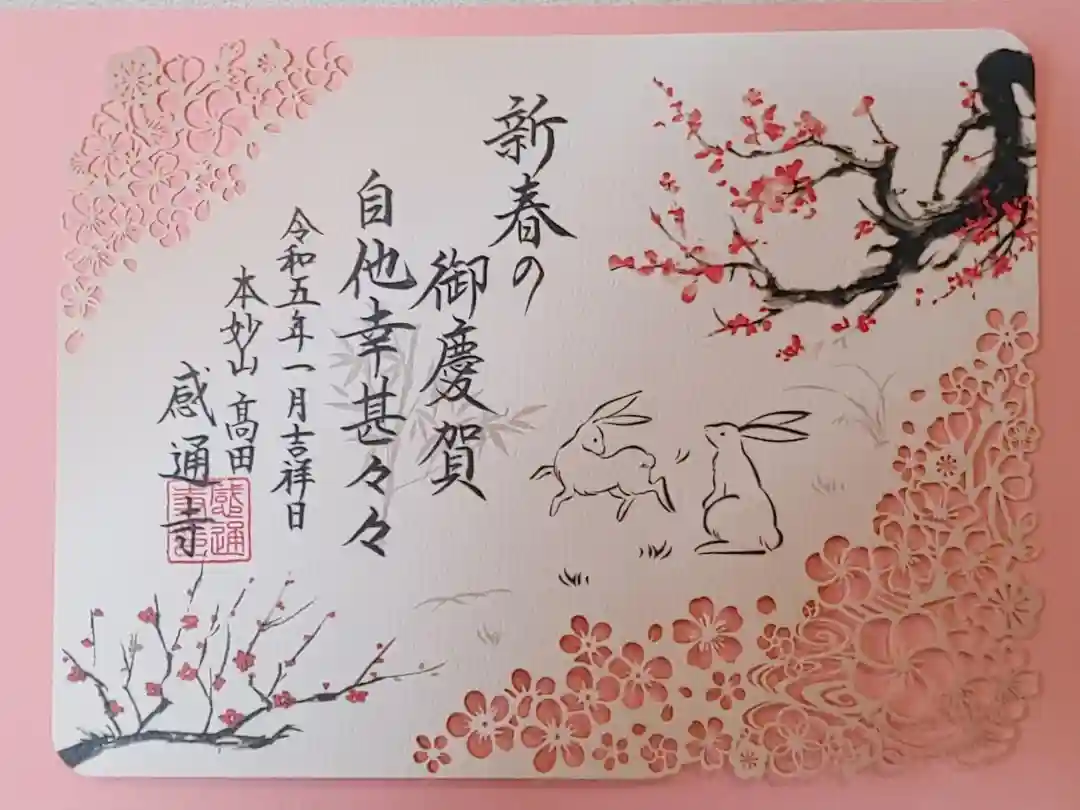 新春の
御慶賀
自他幸甚々々
令和五年一月吉祥日
本妙山 髙田
感通寺
感通
寺印